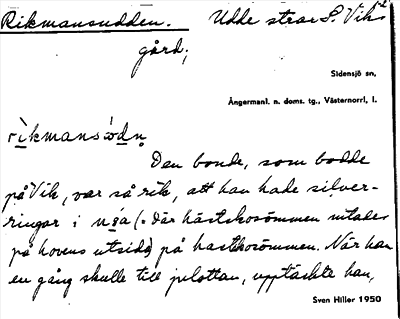 Rikmansudden. Udde strax S. Viks
gård;
Sidensjö sn,
Ångermanl. n. doms. tg., Västernorrl. l.
rìkmansòdn
Den bonde, som bodde
på Vik, var så rik, att han hade silver-
ringar i (: där hästskosömmen nitades
på hovens utsida) på hästskosömmen. När han
en gång skulle till julottan, upptäckte han,
Sven Hiller 1950